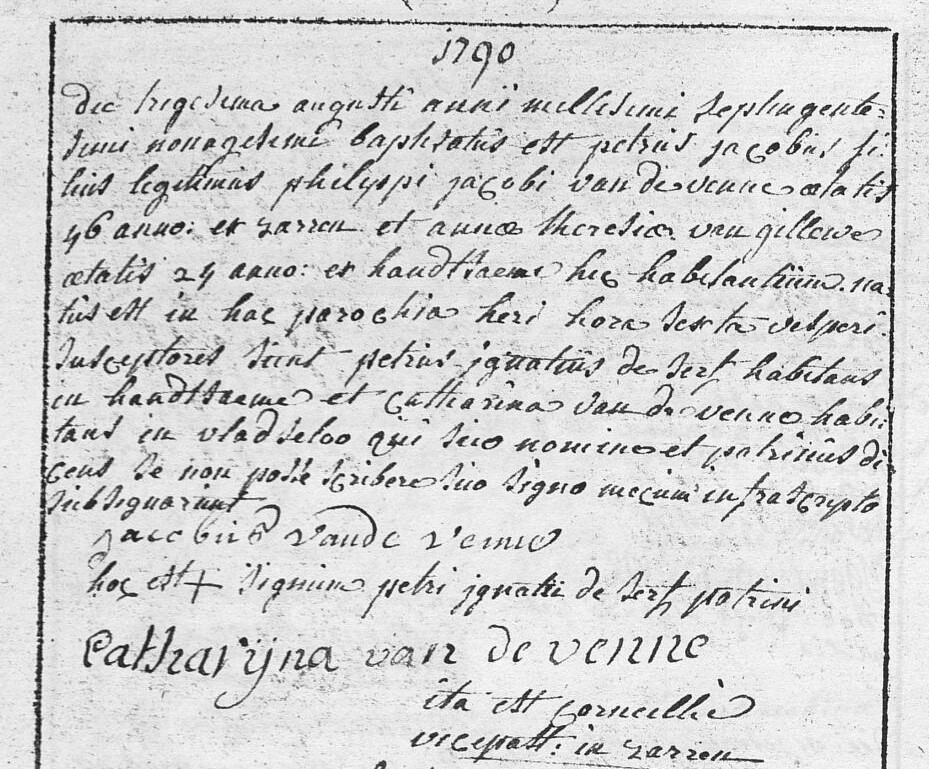 1790
die trigesima augusti anni millesimi septingente=
simi nonagesimi baptisatus est petrus jacobus fi=
lius legitimus philippi jacobi van de venne ætatis
46 anno: ex zarren et annæ theresiæ van gillewe
ætatis 24 anno: ex handtsaeme hic habitantium. na=
tus est in hac parochia heri hora sexta vesperi.
susceptores sunt petrus ignatius de serf habitans
in handtsaeme et Catharina van de venne habi=
tans in vladsloo qui suo nomine et patrinus di=
cens se non posse scribere suo signo mecum infrascripto
subsignarunt
jacobus vande venne
hoc est + signum petri ignatii de serf patrini
Catharijna van de venne
ita est corneillie
vicepast: in zarren